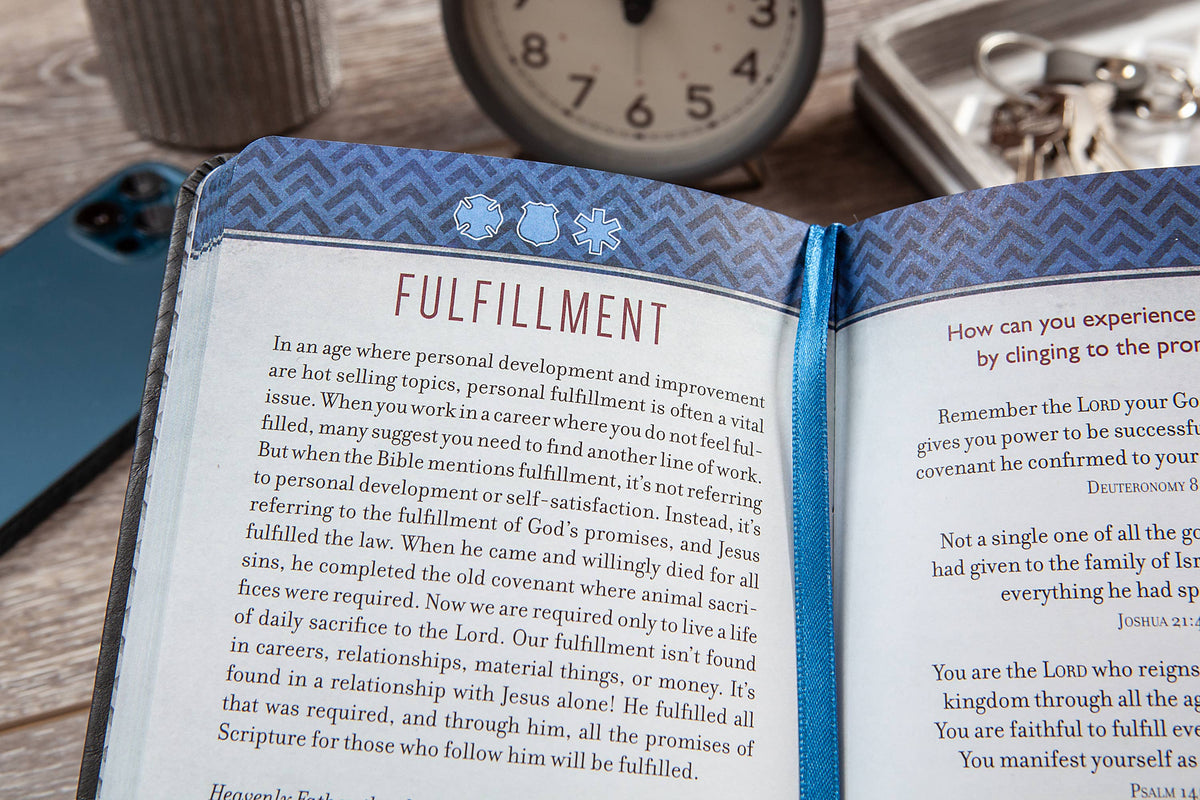 8 7 6 5 4 3
FULFILLMENT
In an age where personal development and improvement
are hot selling topics, personal fulfillment is often a vital
issue. When you work in a career where you do not feel ful-
filled, many suggest you need to find another line of work.
But when the Bible mentions fulfillment, it's not referring
to personal development or self-satisfaction. Instead, it's
referring to the fulfillment of God's promises, and Jesus
fulfilled the law. When he came and willingly died for all
sins, he completed the old covenant where animal sacri-
fices were required. Now we are required only to live a life
of daily sacrifice to the Lord. Our fulfillment isn't found
in careers, relationships, material things, or money. It's
found in a relationship with Jesus alone! He fulfilled all
that was required, and through him, all the promises of
Scripture for those who follow him will be fulfilled.
Heavenly
How can you experience
by clinging to the
Remember the LORD your
gives you power to be
covenant he confirmed to your
DEUTERONOMY 8
Not a single one of all the
had given to the family of
everything he had
JOSHUA 21:4
You are the LORD who reigns
kingdom through all the
You are faithful to fulfill
You manifest yourself as
PSALM 14